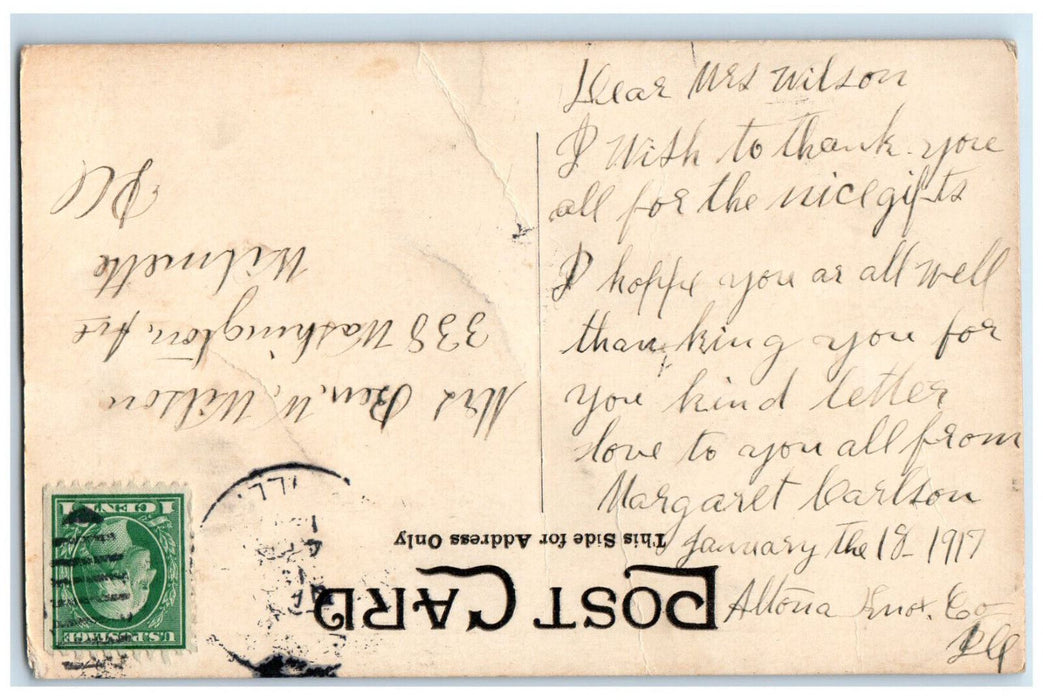 Dear Mrs Wilson
I Wish to thank you
all for the nice gifts
I hoppe you ar all well
thanking you for
you kind letter
love to you all from
Margaret Carlson
January the 18 - 1917
Altona Knox. Co
Ill
POST CARD
This Side for Address Only
Mrs Ben. W. Wilson
338 Washington, Ave
Wilmette
Ill
U.S. POSTAGE
1 CENT 1